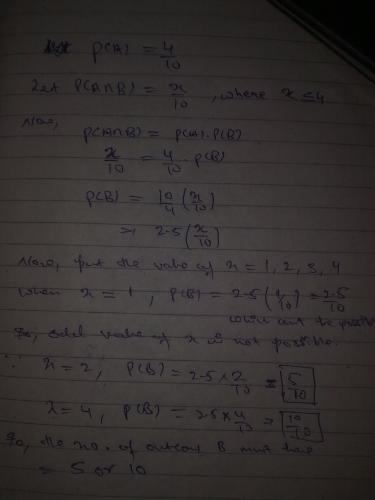 P(A) = 4/10
Let P(A∩B) = x/10, where x ≤ 4
Now,
P(A∩B) = P(A)·P(B)
x/10 = 4/10 · P(B)
P(B) = 10/4 (x/10)
⇒ 2.5 (x/10)
Now, put the value of x = 1, 2, 3, 4
When x = 1, P(B) = 2.5 (1/10) = 2.5/10
which not be possible
So, odd value of x is not possible.
∵ x = 2, P(B) = 2.5 × 2/10 = 5/10
x = 4, P(B) = 2.5 × 4/10 ⇒ 10/10
So, the no. of outcom B must have
= 5 or 10